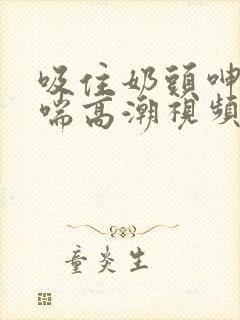 吸住奶頭呻
喘高潮視頻
童炎生